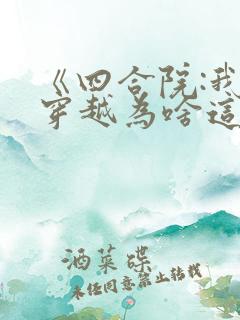 《四合院:我
穿越為啥這
酒菜碟
未经同意禁止转载